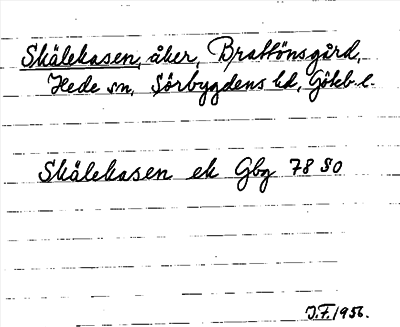 Skälekasen, åker, Brattönsgård,
Hede sn, Sörbygdens hd, Gökb l.
Skälekasen ek Gbg 78 80
J.F. 1956.